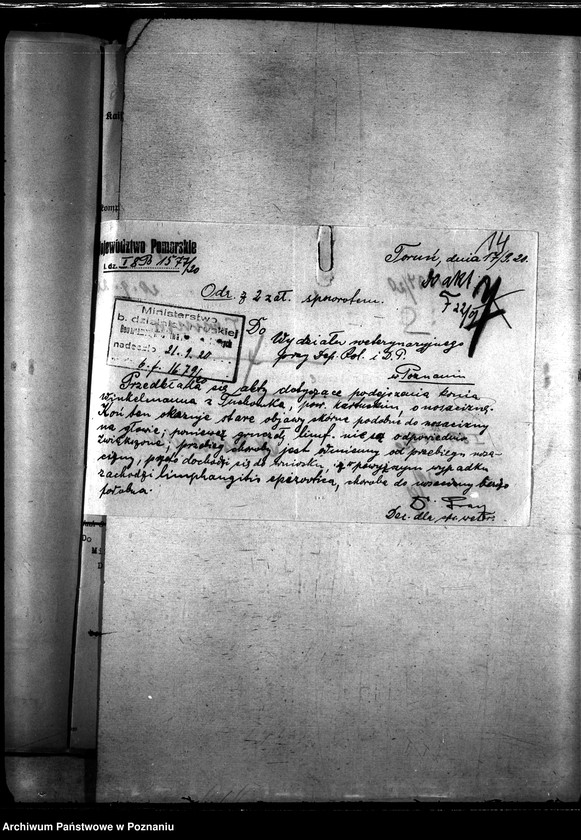 14
Województwo Pomorskie
Toruń, dnia 17/9.20.
L. dz. I 8B 1577/20
Do akt
F 22/01
7
Odr. z 2 zał. zpowrotem.
Ministerstwo
b. dzielnicy pruskiej
nadeszło 21.9.20
Do
Wydziału weterynaryjnego
przy Dep. Rol. i D.P.
w Poznaniu
Przedkłada się akty dotyczące podejrzenia konia
Winkelmanna z Tuchonka, pow. kartuskim, o nosaciznę.
Koń ten okazuje stare objawy skórne podobne do nosacizny
na głowie; ponieważ gruczoły limf. nie są odpowiednio
zwiększone, przebieg choroby jest odmienny od przebiegu nosa-
cizny, przeto dochodzi się do wniosku, z powyższym wypadku
zachodzi limphangitis epizootica, choroba do nosacizny bardzo
podobna.
Dec. dla spr. weter.
Do
Archiwum Państwowe w Poznaniu